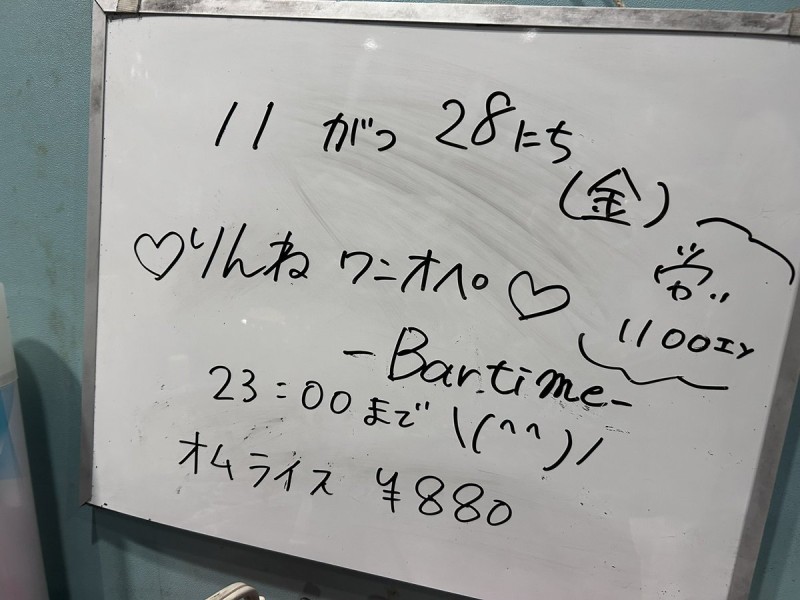 11 がつ 28にち
(金)
♡りんね ワンオペ♡
1100エン
-Bar.time-
23:00まで \(^^)/
オムライス ¥880